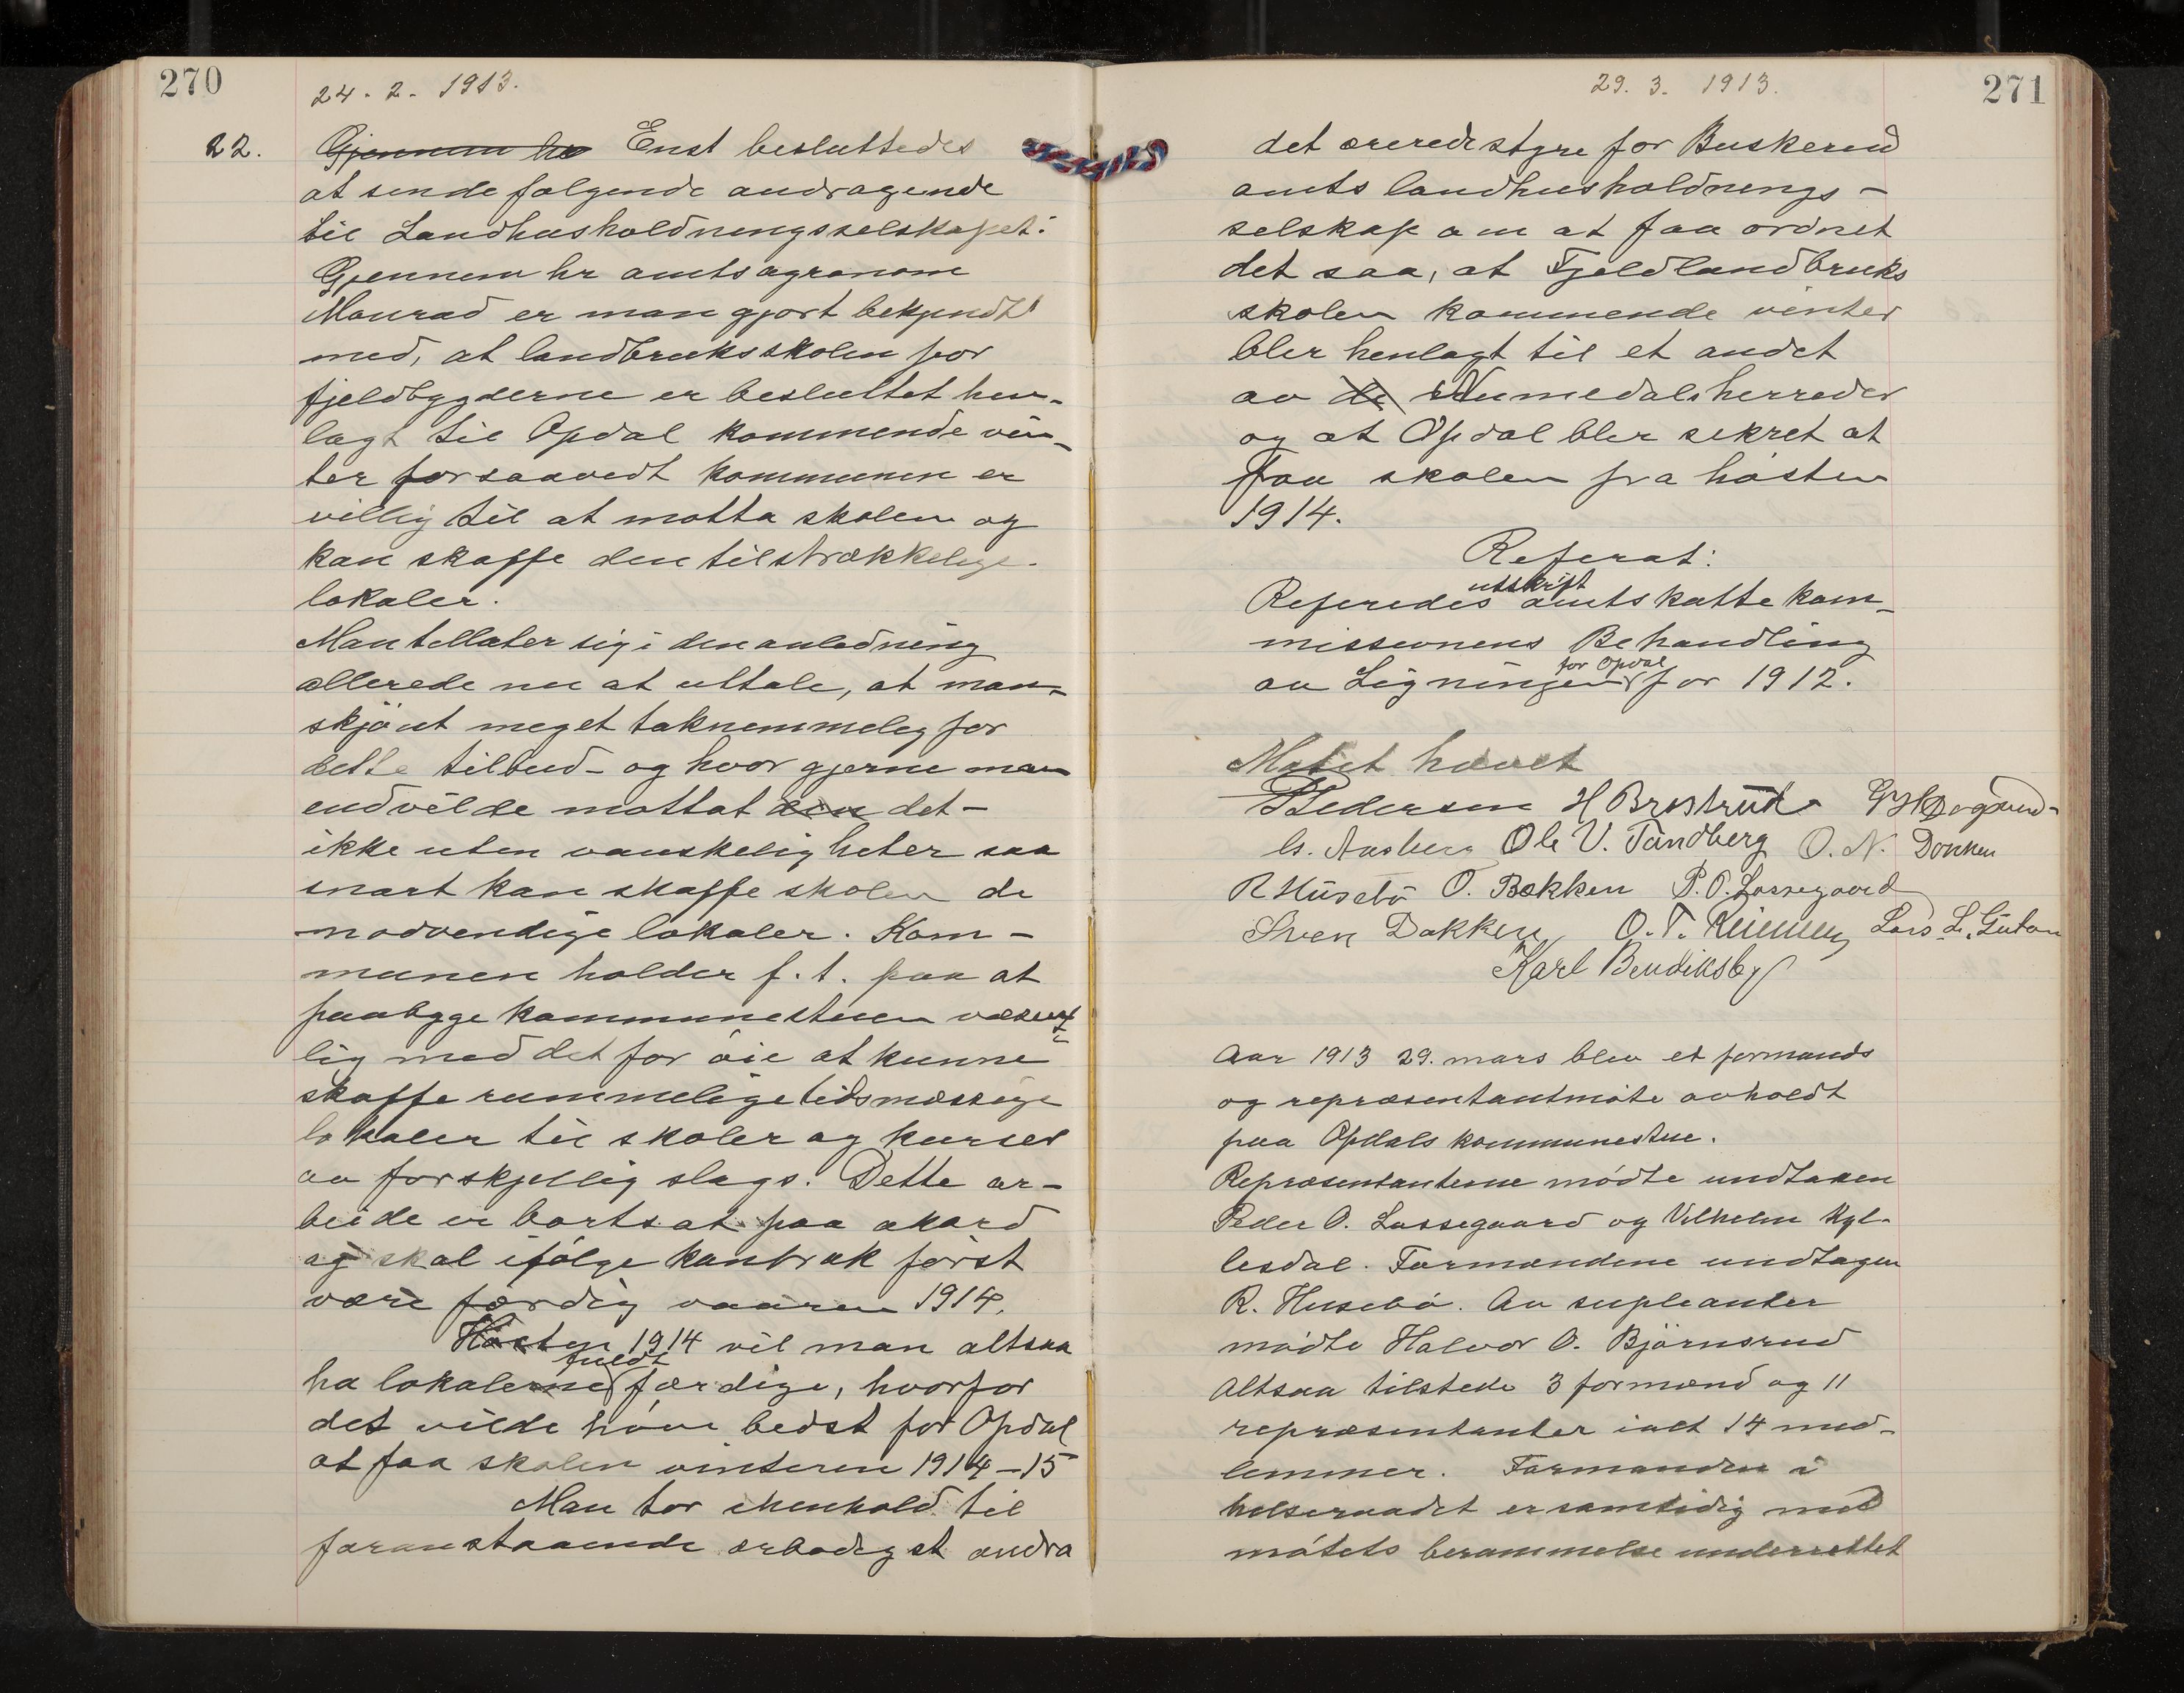 270
24. 2. 1913.
22. Gjennem hr Enst besluttedes
at sende følgende andragende
til Landhusholdningsselskapet:
Gjennem hr amtsagronom
Monrad er man gjort bekjendt
med, at landbruksskolen for
fjeldbygderne er besluttet hen-
lagt til Opdal kommende vin-
ter forsaavidt kommunen er
villig til at motta skolen og
kan skaffe den tilstrækkelige
lokaler.
Man tillater sig i den anledning
allerede nu at uttale, at man-
skjønt meget taknemmelig for
dette tilbud - og hvor gjerne man
end vilde mottat den det -
ikke uten vanskeligheter saa
snart kan skaffe skolen de
nødvendige lokaler. Kom-
munen holder f. t. paa at
paabygge kommunestuen væsent-
lig med det for øie at kunne
skaffe rummelige tidsmæssige
lokaler til skoler og kurser
av forskjellig slags. Dette ar-
beide er bortsat paa akord
og skal ifølge kontrakt først
være færdig vaaren 1914.
Høsten 1914 vil man altsaa
ha lokalerne fuldt færdige, hvorfor
det vilde høve bedst for Opdal
at faa skolen vinteren 1914-15
Man tør i henhold til
foranstaaende ærbødigst andra
271
29. 3. 1913.
det ærede styre for Buskerud
amts landhusholdnings-
selskap om at faa ordnet
det saa, at Fjeldlandbruks
skolen kommende vinter
blir henlagt til et andet
av de Numedalsherreder
og at Opdal blir sikret at
faa skolen fra høsten
1914.
Referat:
Referedes utskrift amtskattekom-
missionens Behandling
av Ligningen for Opdal for 1912.
Møtet hævet
Pedersen H Brøstrud
Ole V. Tandberg O. N.
R Husebø O. Bakken P. O. Lassegaard
Sven Dokken O. T. Lars L.
Karl Bendiksby
Aar 1913 29. mars blev et formands
og repræsentantmøte avholdt
paa Opdals kommunestue.
Repræsentanterne mødte undtaken
Peder O. Lassegaard og Vilhelm Kyl-
lesdal. Formændene undtagen
R. Husebø. Av supleanter
mødte Halvor O. Bjørnsrud
Altsaa tilstede 3 formænd og 11
repræsentanter ialt 14 med-
lemmer. Formanden i
helseraadet er samtidig med
møtets berammelse underrettet